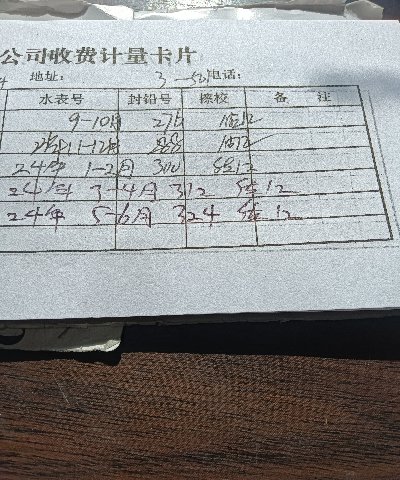 公司收费计量卡片
地址: 3-521 电话:
水表号 封铅号 擦校 备 注
9-10月 276 12
11-12月 288 12
24年 1-2月 300 12
24年 3-4月 312 12
24年 5-6月 324 12